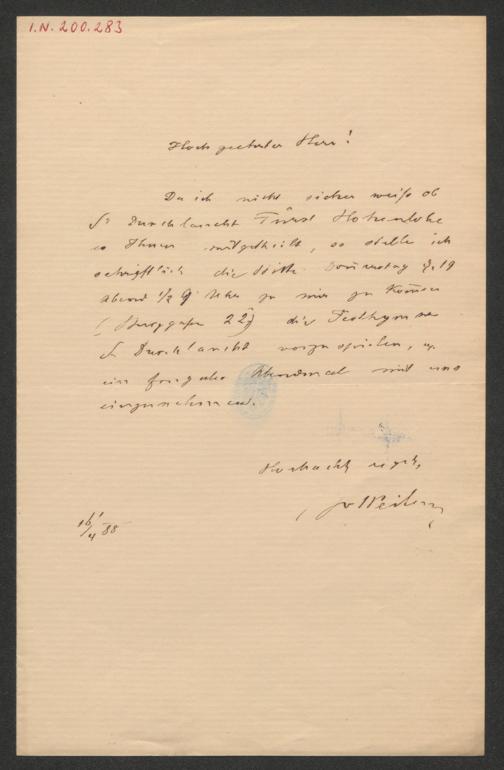 I.N. 200.283
Hochgeehrter Herr!
Da ich nicht sicher weiß ob
Sr Durchlaucht Fürst Hohenlohe
es Ihnen mitgetheilt, so stelle ich
schriftlich die Bitte Donnerstag d. 19
Abend ½ 9 Uhr zu mir zu kom̄en
( 22) die Festhymne
Sr Durchlaucht vorzuspielen, u.
ein Abendmal mit uns
einzunehmen.
Hochacht
16/4 88